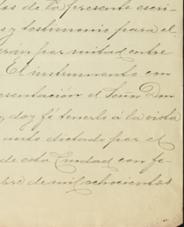 os de la presente escri-
y testimonio para el
rán por mitad entre
El instrumento con
esentación el Señor Don
, doy fé tenerlo á la vista
auto dictado por el
de esta Ciudad con fe-
bre de mil ochocientos